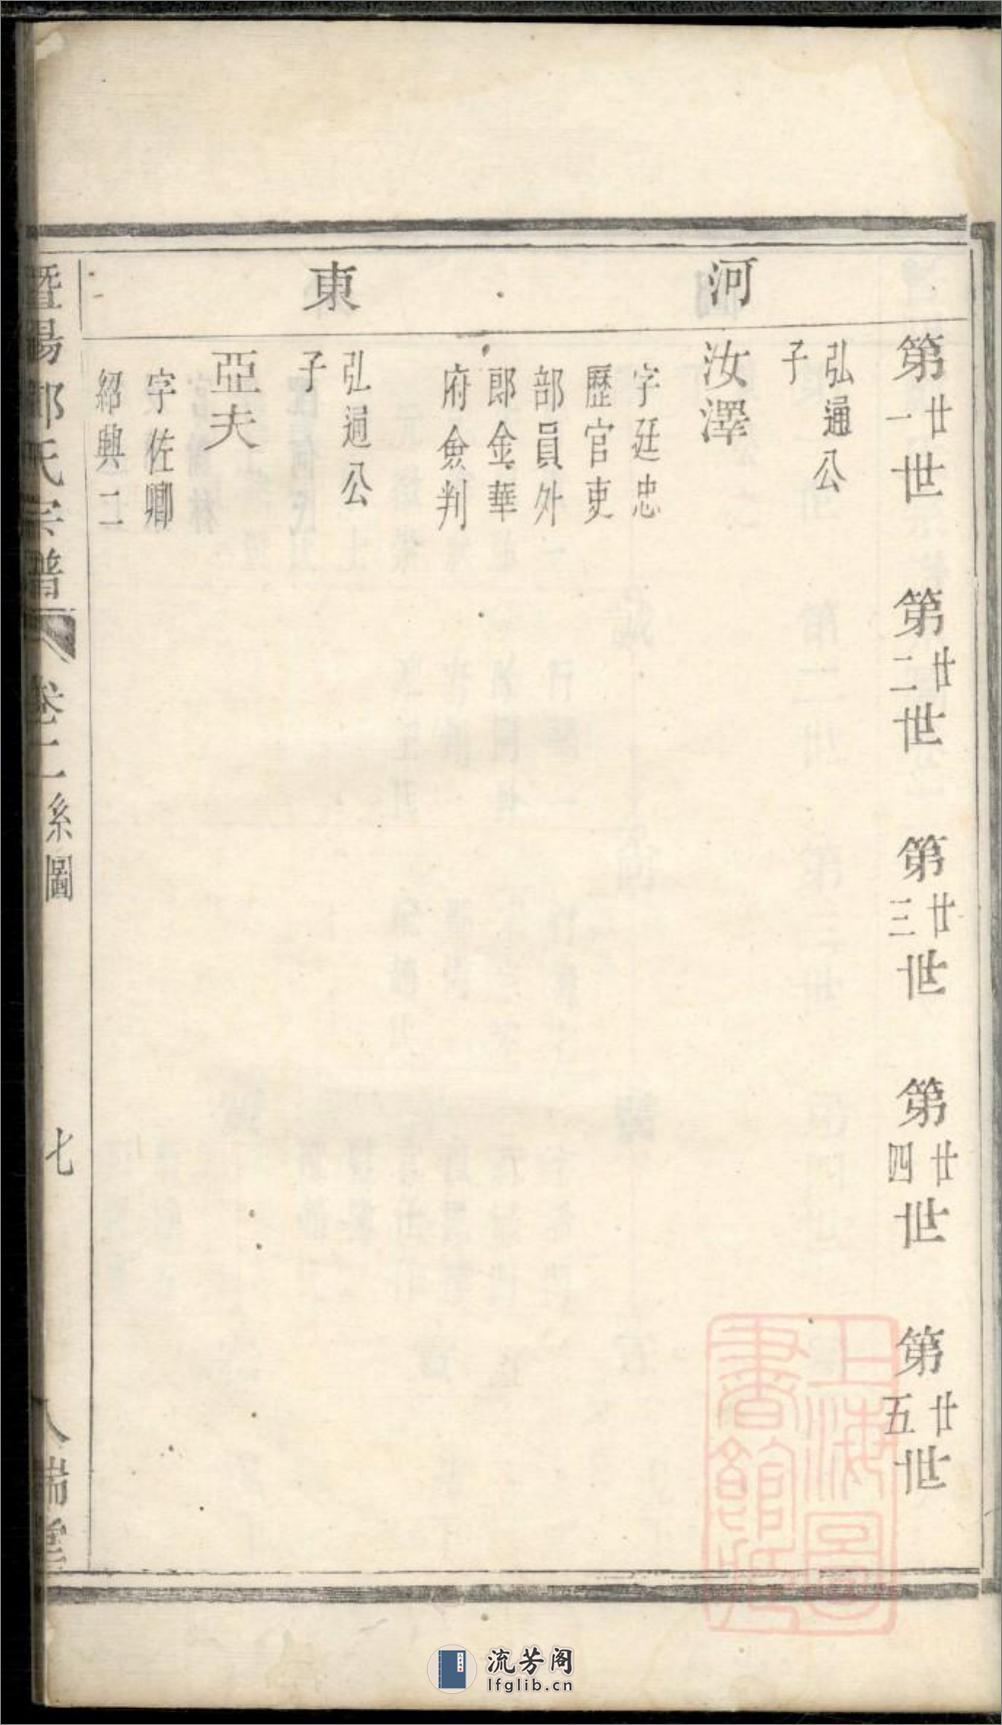 河
東
第廿一世 第廿二世 第廿三世 第廿四世 第廿五世
弘通公
子
汝澤
字廷忠
歷官吏
部員外
郎金華
府僉判
弘公
子
亞夫
字佐卿
紹興二
暨陽氏宗譜 卷二系圖 七 人瑞堂
上海圖
書館藏
流芳阁
lfglib.cn